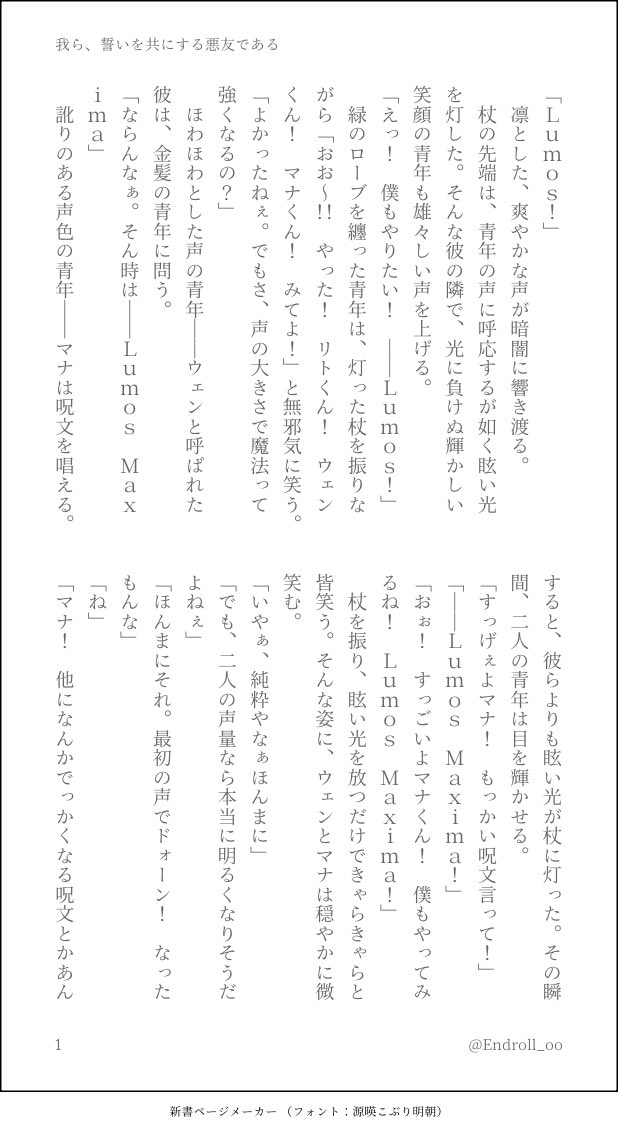 我ら、誓いを共にする悪友である
「Ｌｕｍｏｓ！」
　凛とした、爽やかな声が暗闇に響き渡る。
　杖の先端は、青年の声に呼応するが如く眩い光
を灯した。そんな彼の隣で、光に負けぬ輝かしい
笑顔の青年も雄々しい声を上げる。
「えっ！　僕もやりたい！　――Ｌｕｍｏｓ！」
　緑のローブを纏った青年は、灯った杖を振りな
がら「おお～!!　やった！　リトくん！　ウェン
くん！　マナくん！　みてよ！」と無邪気に笑う。
「よかったねぇ。でもさ、声の大きさで魔法って
強くなるの？」
　ほわほわとした声の青年――ウェンと呼ばれた
彼は、金髪の青年に問う。
「ならんなぁ。そん時は――Ｌｕｍｏｓ　Ｍａｘ
ｉｍａ」
　訛りのある声色の青年――マナは呪文を唱える。
すると、彼らよりも眩い光が杖に灯った。その瞬
間、二人の青年は目を輝かせる。
「すっげぇよマナ！　もっかい呪文言って！」
「――Ｌｕｍｏｓ　Ｍａｘｉｍａ！」
「おぉ！　すっごいよマナくん！　僕もやってみ
るね！　Ｌｕｍｏｓ　Ｍａｘｉｍａ！」
　杖を振り、眩い光を放つだけできゃらきゃらと
皆笑う。そんな姿に、ウェンとマナは穏やかに微
笑む。
「いやぁ、純粋やなぁほんまに」
「でも、二人の声量なら本当に明るくなりそうだ
よねぇ」
「ほんまにそれ。最初の声でドォーン！　なった
もんな」
「ね」
「マナ！　他になんかでっかくなる呪文とかあん
1
@Endroll_oo
新書ページメーカー（フォント：源暎こぶり明朝）